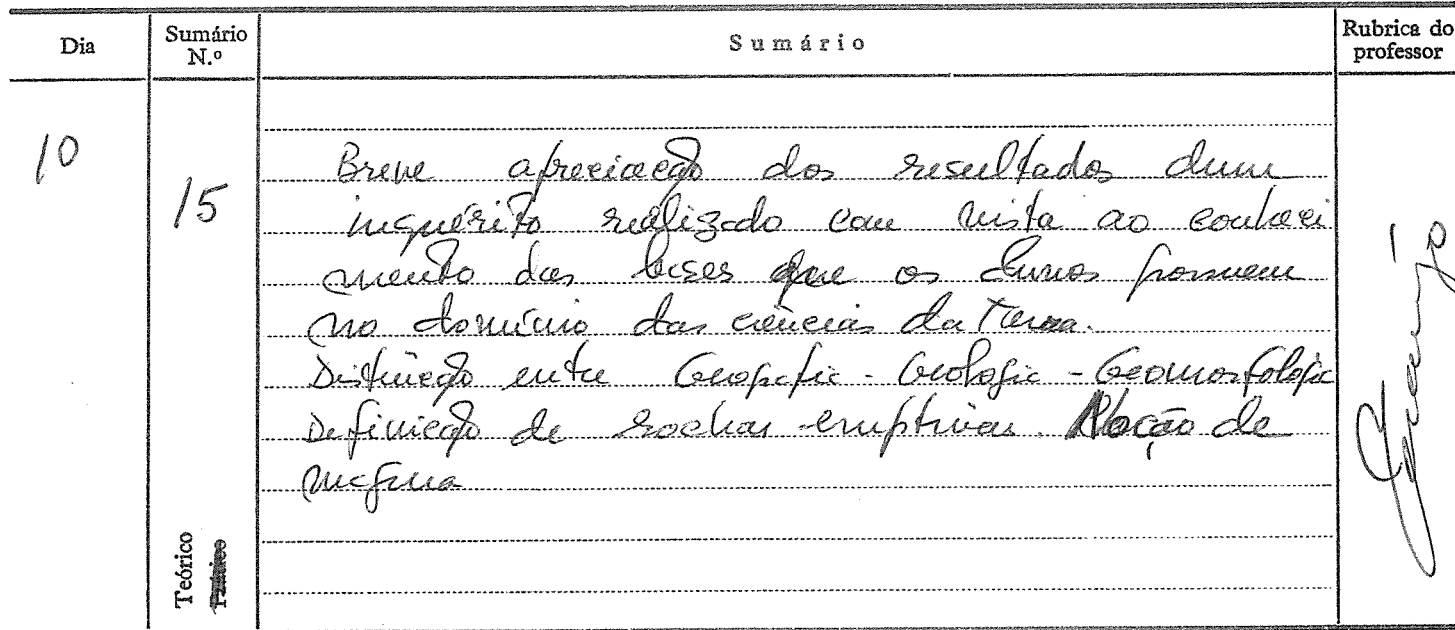 Dia Sumário N.º Sumário Rubrica do professor
10
15
Breve apreciação dos resultados dum
inquérito realizado com vista ao conheci
mento das bases que os alunos possuem
no domínio das ciências da Terra.
Distinção entre Geografia - Geologia - Geomorfologia
Definição de rochas eruptivas. Noção de
magma
Teórico